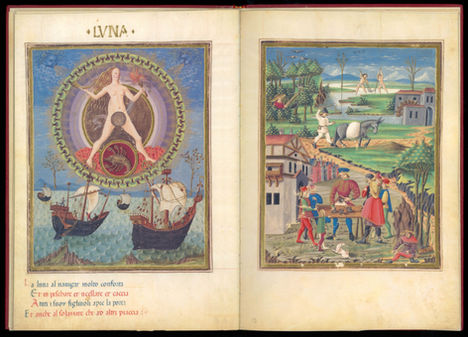 LVNA
La luna al nauigar molto conforta
Et in peschare et ucellare et caccia
A tuti i suoy figliuoli apre la porta
Et anche al solassare che ad altri piaccia